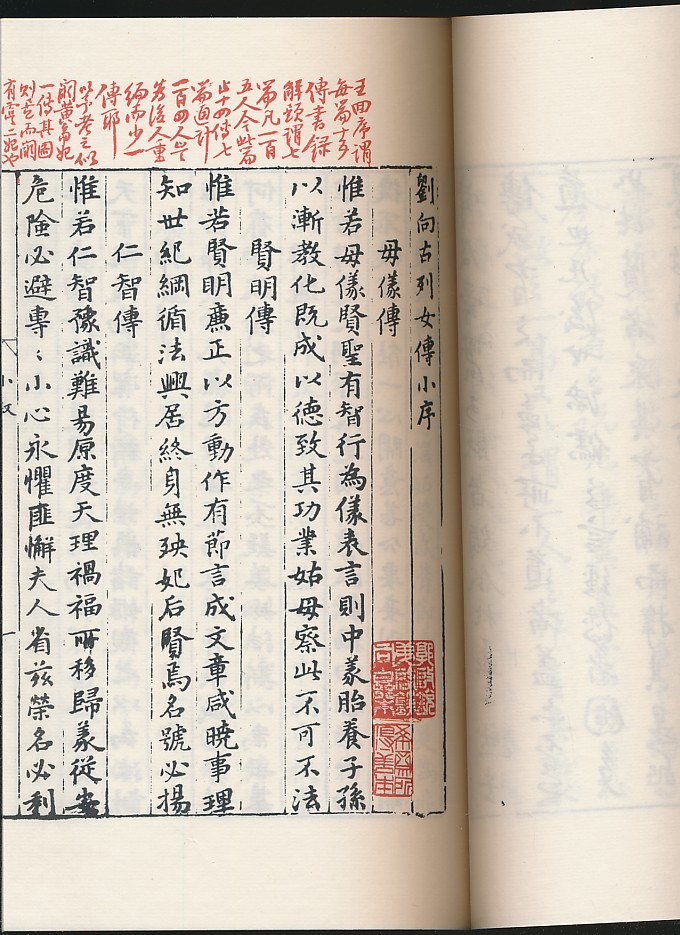 王回序謂
每篇十五
傳書錄
解題謂七
篇凡一百
五人今此篇
止十四傳七
篇通計
一百四人豈
為後人重
編而少一
傳耶
一傳其圖
有虞二妃也
劉向古列女傳小序
母儀傳
惟若母儀賢聖有智行為儀表言則中義胎養子孫
以漸教化既成以德致其功業姑母察此不可不法
賢明傳
惟若賢明廉正以方動作有節言成文章咸曉事理
知世紀綱循法興居終身無殃妃后賢焉名號必揚
仁智傳
惟若仁智豫識難易原度天理禍福所移歸義從安
危險必避專〻小心永懼匪懈夫人省茲榮名必利